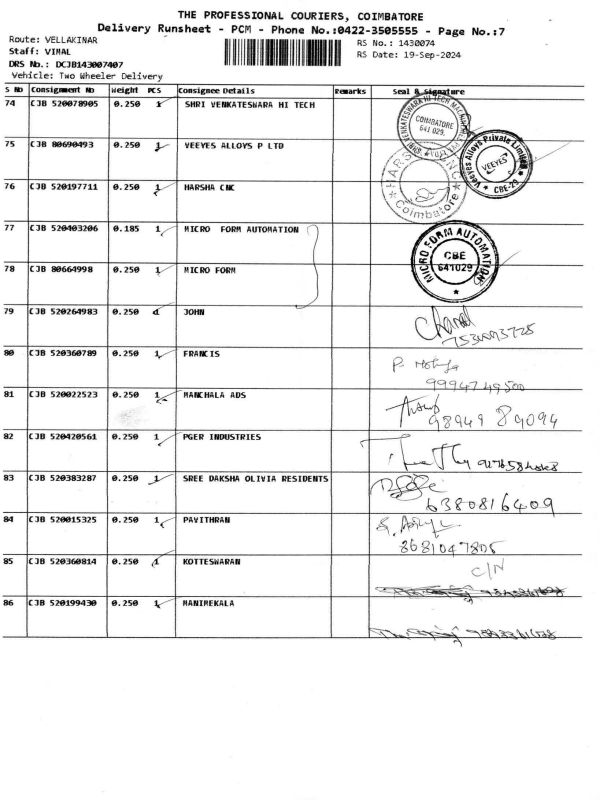 THE PROFESSIONAL COURIERS, COIMBATORE
Delivery Runsheet - PCM - Phone No.:0422-3505555 - Page No.:7
Route: VELLAKINAR
RS No.: 1430074
Staff: VIMAL
RS Date: 19-Sep-2024
DRS No.: DCJB143007407
Vehicle: Two Wheeler Delivery
S No Consignment No Weight PCS Consignee Details Remarks Seal & Signature
74 CJB 520078905 0.250 1 SHRI VENKATESWARA HI TECH
COIMBATORE 641 029.
75 CJB 80690493 0.250 1 VEEYES ALLOYS P LTD
Veeyes Alloys Private Limited VEEYES CBE-29
76 CJB 520197711 0.250 1 HARSHA CNC
Coimbatore
77 CJB 520403206 0.185 1 MICRO FORM AUTOMATION
MICRO FORM AUTOMATION CBE 641029
78 CJB 80664998 0.250 1 MICRO FORM
79 CJB 520264983 0.250 1 JOHN
80 CJB 520360789 0.250 1 FRANCIS
9994749500
81 CJB 520022523 0.250 1 MANCHALA ADS
98949 89094
82 CJB 520420561 0.250 1 PGER INDUSTRIES
83 CJB 520383287 0.250 1 SREE DAKSHA OLIVIA RESIDENTS
6380816409
84 CJB 520015325 0.250 1 PAVITHRAN
8681047805
85 CJB 520360814 0.250 1 KOTTESWARAN
C/N
86 CJB 520199430 0.250 1 MANIMEKALA